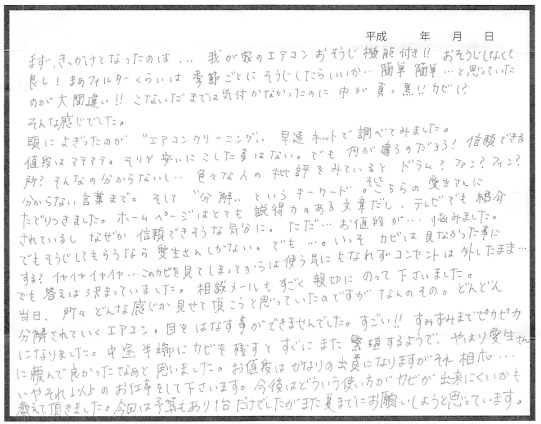 平成　　年　　月　　日
まず、きっかけとなったのは… 我が家のエアコンおそうじ機能付き!! おそうじしなくて
良し! まぁフィルターくらいは季節ごとにそうじしたらいいか…簡単簡単…と思っていた
のが大間違い!! こないだまでは気付かなかったのに中が真っ黒!! カビ!?
そんな感じでした。
頭によぎったのが"エアコンクリーニング"。早速ネットで調べてみました。
値段はマチマチ。そりゃ安いにこした事はない。でも何が違うのだろう! 信頼できる
所? そんなの分からないし… 色々な人の批評をみているとドラム? ファン? フィン?
分からない言葉まで。そして"分解"というキーワード。そこでこちらの愛生さんに
たどりつきました。ホームページはとても説得力のある文章だし、テレビでも紹介
されているしなぜか信頼できそうな気分に。ただ…お値段が…悩みました。
でもそうじしてもらうなら愛生さんしかない。でも…。いっそカビは見なかった事に
する? イヤイヤイヤイヤ…このカビを見てしまってからは使う気にもなれずコンセントは外したまま…
でも答えは決まっていました。相談メールもすごく親切にのって下さいました。
当日、所々どんな感じか見せて頂こうと思っていたのですがなんのその。どんどん
分解されていくエアコン。目をはなす事ができませんでした。すごい!! すみずみまでピカピカ
になりました。中途半端にカビを残すとすぐにまた繁殖するようで、やはり愛生さん
に頼んで良かったなぁと思いました。お値段はかなりの出費になりますがそれ相応…
いやそれ以上のお仕事をして下さいます。今後はどういう使い方がカビが出来にくいかも
教えて頂きました。今回は予算もあり1台だけでしたがまた夏までにお願いしようと思っています。